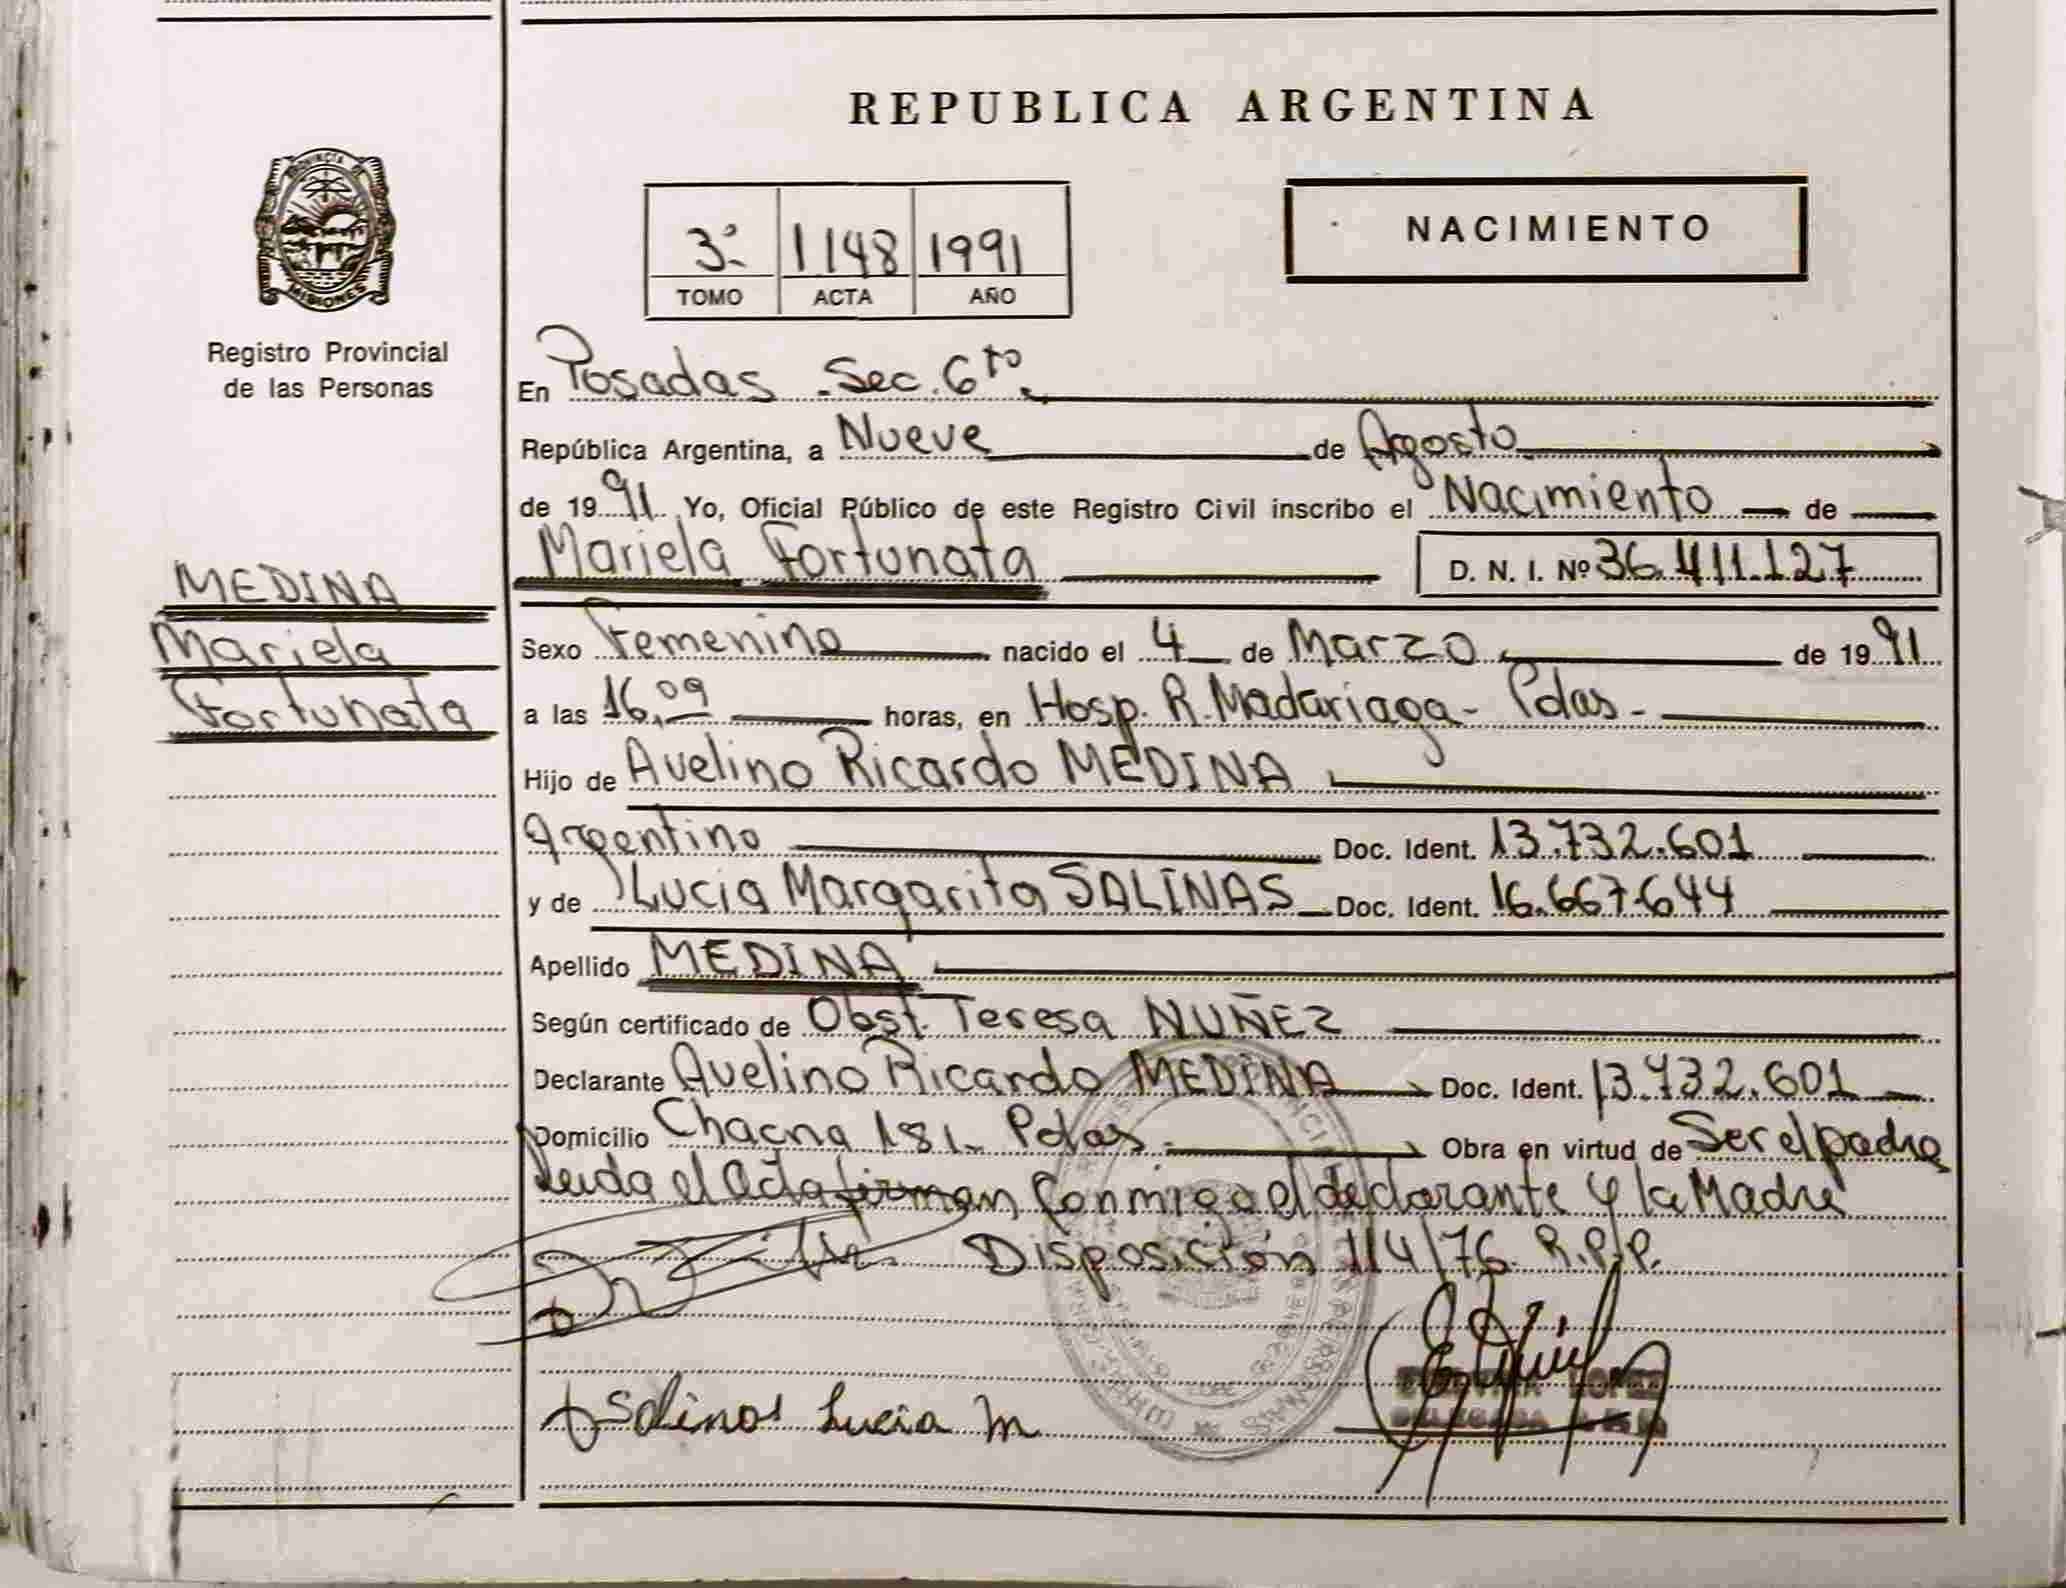 REPUBLICA ARGENTINA
PROVINCIA DE
MISIONES
Registro Provincial
de las Personas
NACIMIENTO
3º 1148 1991
TOMO ACTA AÑO
En Posadas - Sec. 6to.
República Argentina, a Nueve de Agosto
de 1991. Yo, Oficial Público de este Registro Civil inscribo el Nacimiento de
Mariela Fortunata D. N. I. Nº 36.411.127
MEDINA
Mariela
Fortunata
Sexo Femenino nacido el 4 de Marzo de 1991
a las 16,09 horas, en Hosp. R. Madariaga - Pdas -
Hijo de Avelino Ricardo MEDINA
Argentino Doc. Ident. 13.732.601
y de Lucia Margarita SALINAS Doc. Ident. 16.667.644
Apellido MEDINA
Según certificado de Obst. Teresa NUÑEZ
Declarante Avelino Ricardo MEDINA Doc. Ident. 13.732.601
Domicilio Chacra 181 - Pdas - Obra en virtud de Ser el padre
Leida el Acta firman Conmigo el declarante y la Madre
Disposición 114/76 R.P.P.
Salinas Lucia M